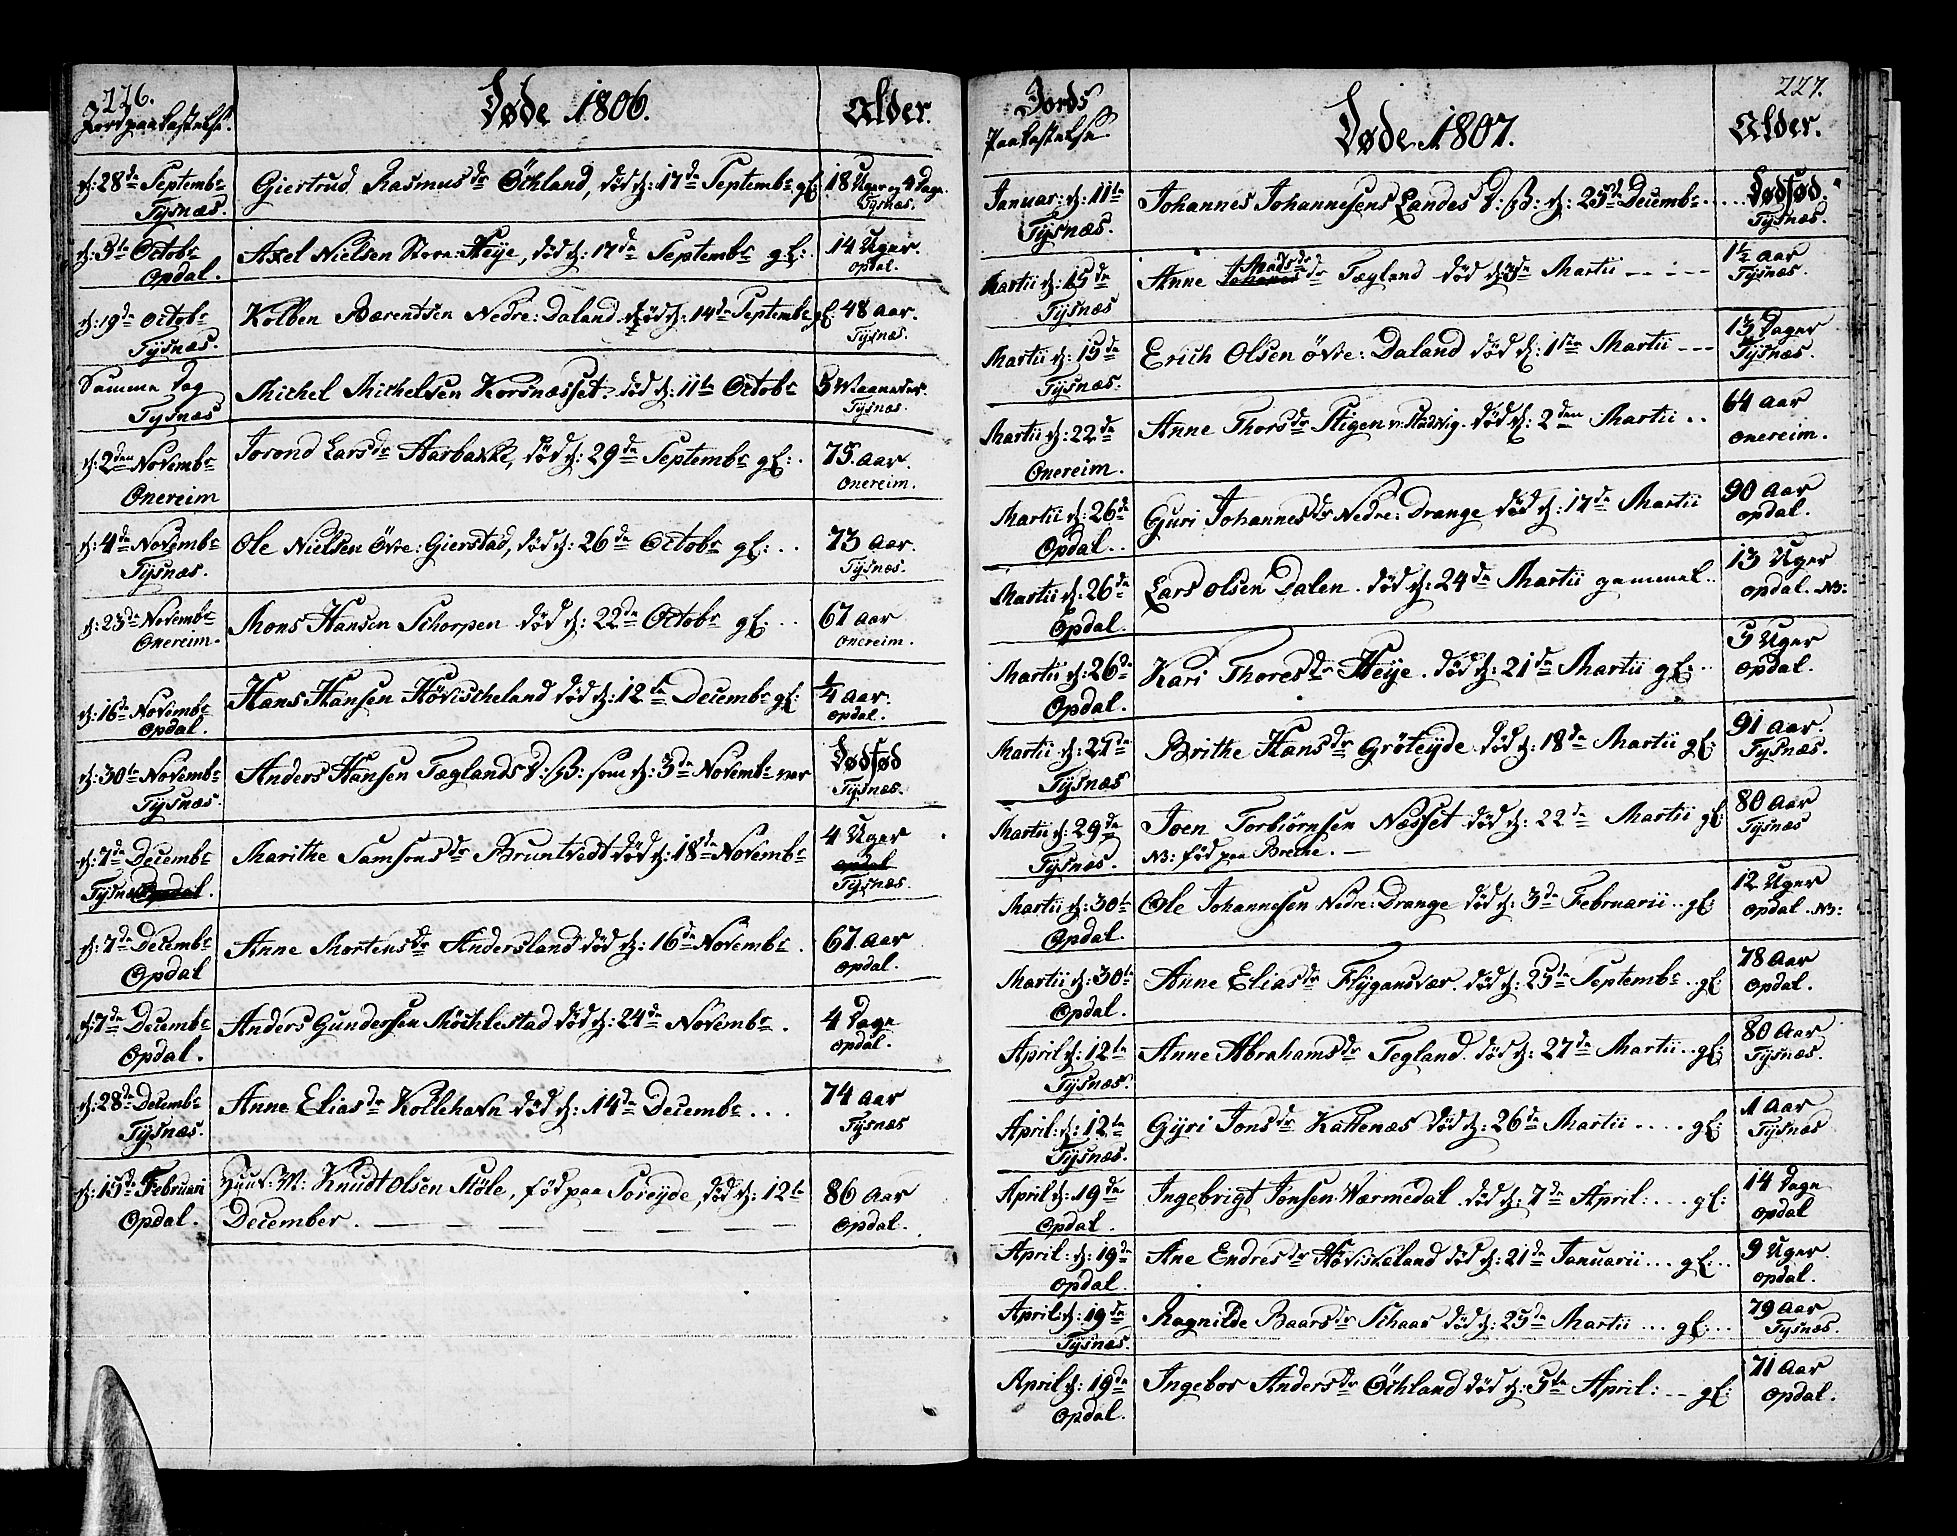 226.
Jordpaakastelse.
Døde 1806.
Alder.
d: 28de Septembr
Tÿsnæs.
Giertrud Rasmusdr Öchland, död d: 17de Septembr gl:
18 Uger og 4 Dage.
Tÿsnæs.
d: 3die Octobr
Opdal.
Axel Nielsen Store: Heÿe, död d: 17de Septembr gl:
14 Uger.
Opdal.
d: 19de Octobr
Tÿsnæs.
Kolben Bærentsen Nedre: Daland död d: 14de Septembr gl:
48 Aar.
Tÿsnæs.
Samme Dag
Tÿsnæs
Michel Michelsen Korsnæsset. död d: 11te Octobr
5 Maaneder.
Tÿsnæs.
d: 2den Novembr
Onereim
Jorond Larsdr Aarbakke, död d: 29de Septembr gl:
75. Aar.
Onereim.
d: 4de Novembr
Tÿsnæs.
Ole Nielsen Övre: Gierstad, död d: 26de Octobr gl: . .
73 Aar.
Tÿsnæs.
d: 23de Novembr
Onereim.
Mons Hansen Schorpen död d: 22de Octobr gl: . .
67 Aar
Onereim.
d: 16de Novembr
Opdal.
Hans Hansen Hövischeland död d: 12te Decembr gl:
1/4 Aar.
Opdal.
d: 30te Novembr
Tÿsnæs.
Anders Hansen Tæglands d: B: som d: 3de Novembr var
Dødfød
Tÿsnæs.
d: 7de Decembr
Tÿsnæs Opdal.
Marithe Samsonsdr Bruntvedt död d: 18de Novembr
4 Uger
Opdal
Tÿsnæs.
d: 7de Decembr
Opdal
Anne Mortensdr Andersland död d: 16de Novembr .
67 Aar
Opdal.
d: 7de Decembr
Opdal.
Anders Gundersen Möchlestad död d: 24de Novembr .
4 Dage
Opdal.
d: 28de Decembr
Tÿsnæs.
Anne Eliasdr Kollehavn död d: 14de Decembr . . .
74 Aar
Tÿsnæs
d: 15de Februari
Opdal.
Huus: M: Knudt Olsen Stöle, föd paa Soreÿde, död d: 12te
December.
86 Aar
Opdal.
227.
Jords
Paakastelse.
Døde 1807.
Alder.
Januar: d: 11te
Tÿsnæs.
Johannes Johannesens Landes d: B: d: 25de Decembr . . . .
Dødfød.
Tÿsnæs.
Martii d: 15de
Tÿsnæs
Anne Johannesdr Madsdr Tægland död d: 3de Martii - - - -
1 1/2 Aar
Tÿsnæs.
Martii d: 15de
Tÿsnæs.
Erich Olsen övre: Daland död d: 1ste Martii - - -
13 Dager
Tÿsnæs.
Martii d: 22de
Onereim.
Anne Thorsdr Stigen v: Stadvig. död d: 2den Martii . .
64 Aar
Onereim.
Martii d: 26de
Opdal. .
Guri Johannesdr Nedre: Drange död d: 17de Martii
90 Aar
Opdal.
Martii d: 26de
Opdal.
Lars Olsen Dalen. död d: 24de Martii gammel. .
13 Uger
Opdal. NB:
Martii d: 26de
Opdal.
Kari Thoresdr Heÿe. död d: 21de Martii gl: . .
5 Uger
Opdal.
Martii d: 27de
Tÿsnæs
Brithe Hansdr Gröteÿde död d: 18de Martii gl:
91 Aar.
Tÿsnæs.
Martii d: 29de
Tÿsnæs.
Joen Torbiörnsen Næsset död d: 22de Martii gl:
NB: föd paa Breche. -
80 Aar
Tÿsnæs
Martii d: 30te
Opdal.
Ole Johannesen Nedre: Drange död d: 3de Februarii . . gl:
12 Uger
Opdal. NB:
Martii d: 30te
Opdal.
Anne Eliasdr Flÿgansvær. död d: 25de Septembr . . gl:
78 Aar
Opdal.
April d: 12te
Tÿsnæs.
Anne Abrahamsdr Tegland. död d: 27de Martii . . gl:
80 Aar
Tÿsnæs.
April: d: 12te
Tÿsnæs.
Gÿri Jonsdr Kattenæs död d: 26de Martii . . . . gl:
1 Aar
Tÿsnæs
April d: 19de
Opdal.
Ingebrigt Jonsen Wærmedal. död d: 7de April: . . . gl:
14 Dage
Opdal
April: d: 19de
Opdal.
Ane Endresdr Hövischeland död d: 21de Januarii . . . gl: . .
9 Uger.
Opdal.
April d: 19de
Tÿsnæs.
Ragnilde Baarsdr Schaar död d: 25de Martii . . . gl: . . .
79 Aar
Tÿsnæs.
April d: 19de
Opdal.
Ingebor Andersdr Öchland död d: 5te April: - - gl:
71 Aar
Opdal.